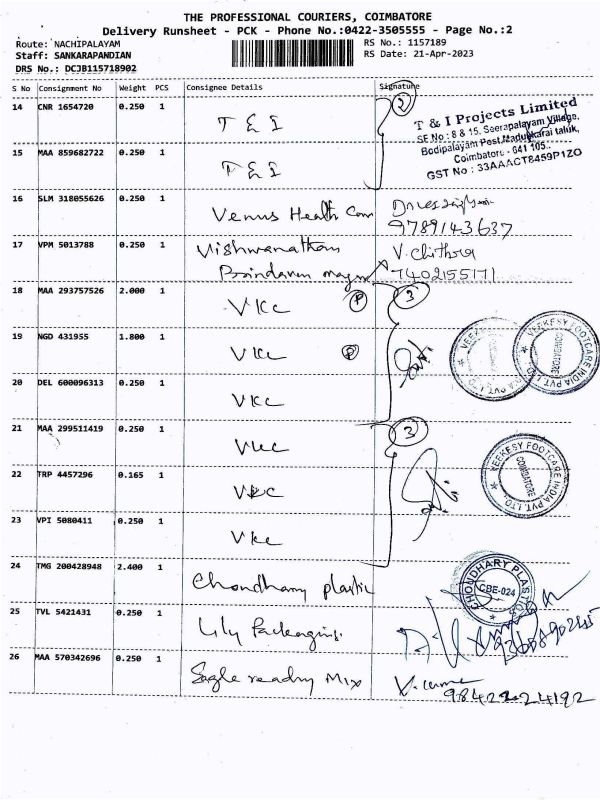 THE PROFESSIONAL COURIERS, COIMBATORE
Delivery Runsheet - PCK - Phone No.:0422-3505555 - Page No.:2
Route: NACHIPALAYAM RS No.: 1157189
Staff: SANKARAPANDIAN RS Date: 21-Apr-2023
DRS No.: DCJB115718902
S No Consignment No Weight PCS Consignee Details Signature
14 CNR 1654720 0.250 1 T & I 2
T & I Projects Limited
SF No : 8 & 15, Seerapalayam Village,
Bodipalayam Post, Madukkarai taluk,
Coimbatore - 641 105.
GST No : 33AAACT8459P1ZO
15 MAA 859682722 0.250 1 T & I
16 SLM 318055626 0.250 1 Venus Health Care
9789143637
17 VPM 5013788 0.250 1 Vishwanathan V. Chithra
Brindavan 7402155171
18 MAA 293757526 2.000 1 VKC P 3
19 NGD 431955 1.800 1 VKC P
VEEKESY FOOTCARE INDIA PVT. LTD. COIMBATORE
20 DEL 600096313 0.250 1 VKC
21 MAA 299511419 0.250 1 VKC 3
VEEKESY FOOTCARE INDIA PVT. LTD. COIMBATORE
22 TRP 4457296 0.165 1 VKC
23 VPI 5080411 0.250 1 VKC
24 TMG 200428948 2.400 1 Choudhary plastic
CHOUDHARY PLASTICS CBE-024
25 TVL 5421431 0.250 1 Lily Packagings.
26 MAA 570342696 0.250 1 Eagle ready Mix